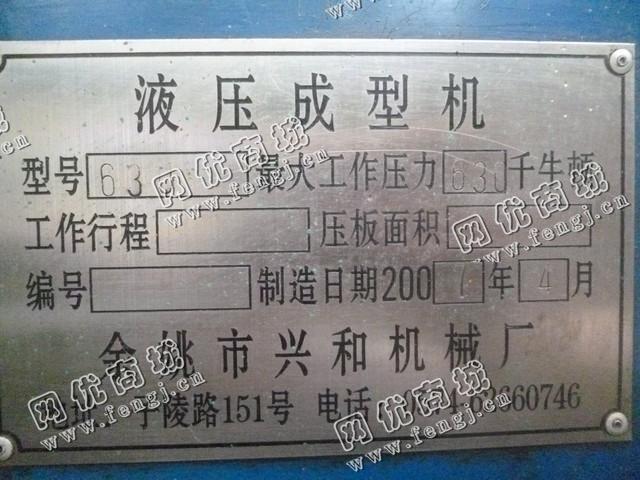 液压成型机
型号 63 最大工作压力 630 千牛顿
工作行程 压板面积
编号 制造日期 2007 年 4 月
余姚市兴和机械厂
地址 子陵路151号 电话 62660746
网优商城
www.fengj.cn
网优商城
www.fengj.cn
网优商城
www.fengj.cn
网优商城
www.fengj.cn